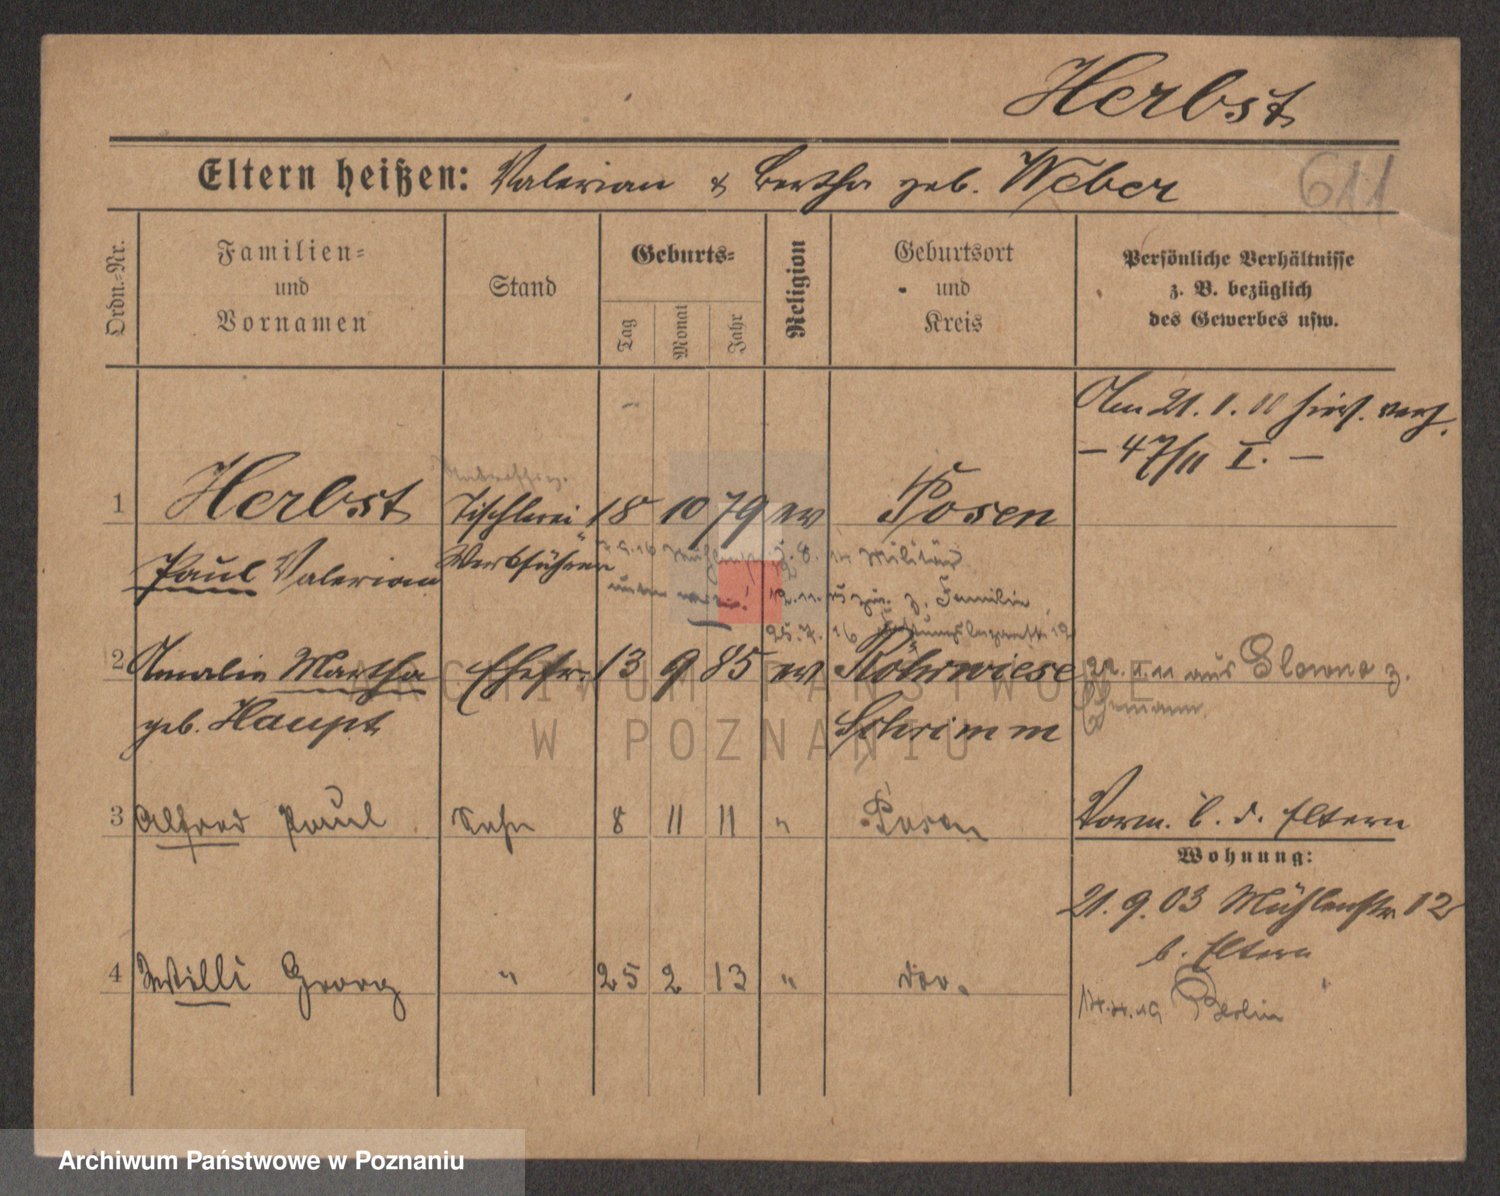 Herbst
Eltern heißen: Valerian & Bertha geb. Weber
611
Ordn.-Nr.
Familien-
und
Vornamen
Stand
Geburts-
Tag
Monat
Jahr
Religion
Geburtsort
und
Kreis
Persönliche Verhältnisse
z. B. bezüglich
des Gewerbes usw.
Am 21. 1. 11 hies. verh.
- 47/11 I. -
1 Herbst Tischlerei 18 10 79 ev Posen
Paul Valerian Werkführer
Militär
z. Familie
25. 7. 16
2 Amalie Martha Ehefr. 13 9 85 ev Röhrwiese
22. II. 11 aus z.
Ehemann
geb. Haupt Schrimm
3 Alfred Paul Sohn 8 11 11 " Posen
Vorm. b. d. Eltern
Wohnung:
21. 9. 03 Mühlenstr 12
b. Eltern
4 Willi Georg " 25 2 13 " do.
Berlin
ARCHIWUM PAŃSTWOWE
W POZNANIU
Archiwum Państwowe w Poznaniu